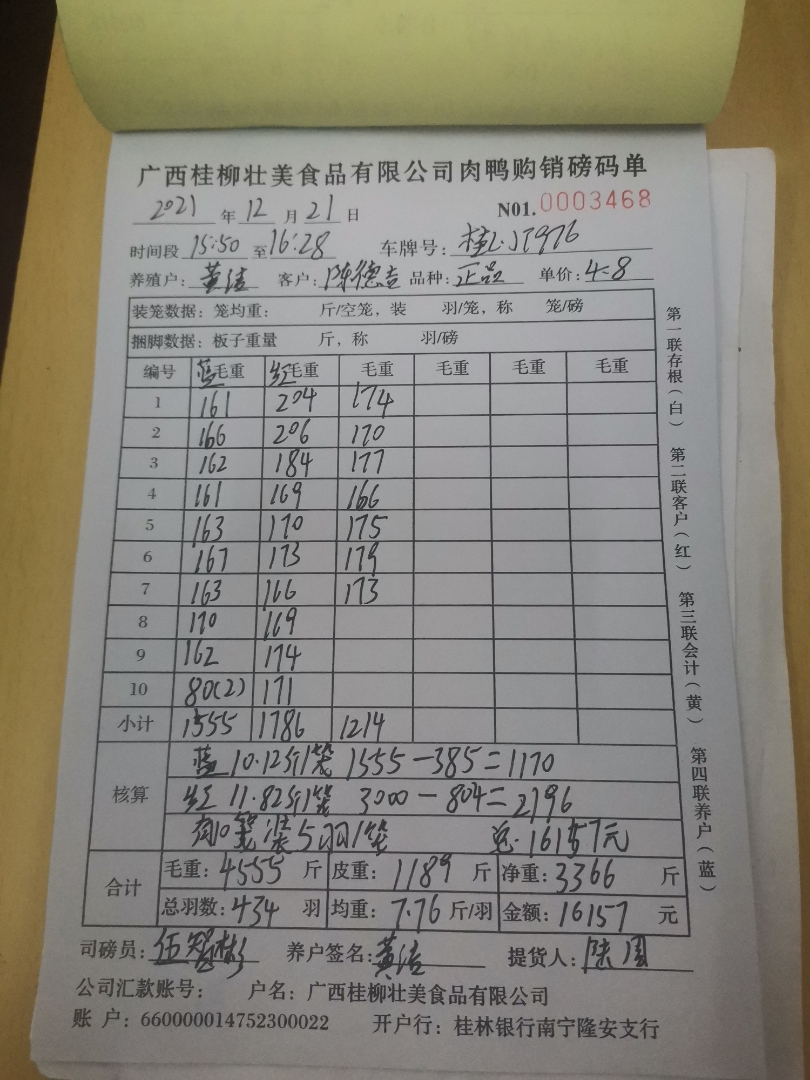 广西桂柳壮美食品有限公司肉鸭购销磅码单
2021 年 12 月 21 日 N01. 0003468
时间段 15:50 至 16:28 车牌号:
养殖户: 黄洁 客户: 陈德吉 品种: 正品 单价: 4.8
装笼数据: 笼均重: 斤/空笼, 装 羽/笼, 称 笼/磅
捆脚数据: 板子重量 斤, 称 羽/磅
编号 蓝毛重 红毛重 毛重 毛重 毛重 毛重
1 161 204 174
2 166 206 170
3 162 184 177
4 161 169 166
5 163 170 175
6 167 173 179
7 163 166 173
8 170 169
9 162 174
10 80(2) 171
小计 1555 1786 1214
核算 蓝 10.12斤/笼 1555-385=1170
红 11.82斤/笼 3000-804=2196
10笼 装5羽/笼 总:16157元
合计 毛重: 4555 斤 皮重: 1189 斤 净重: 3366 斤
总羽数: 434 羽 均重: 7.76 斤/羽 金额: 16157 元
司磅员: 伍智彬 养户签名: 黄洁 提货人:
公司汇款账号: 户名: 广西桂柳壮美食品有限公司
账 户: 660000014752300022 开户行: 桂林银行南宁隆安支行
第一联存根(白) 第二联客户(红) 第三联会计(黄) 第四联养户(蓝)